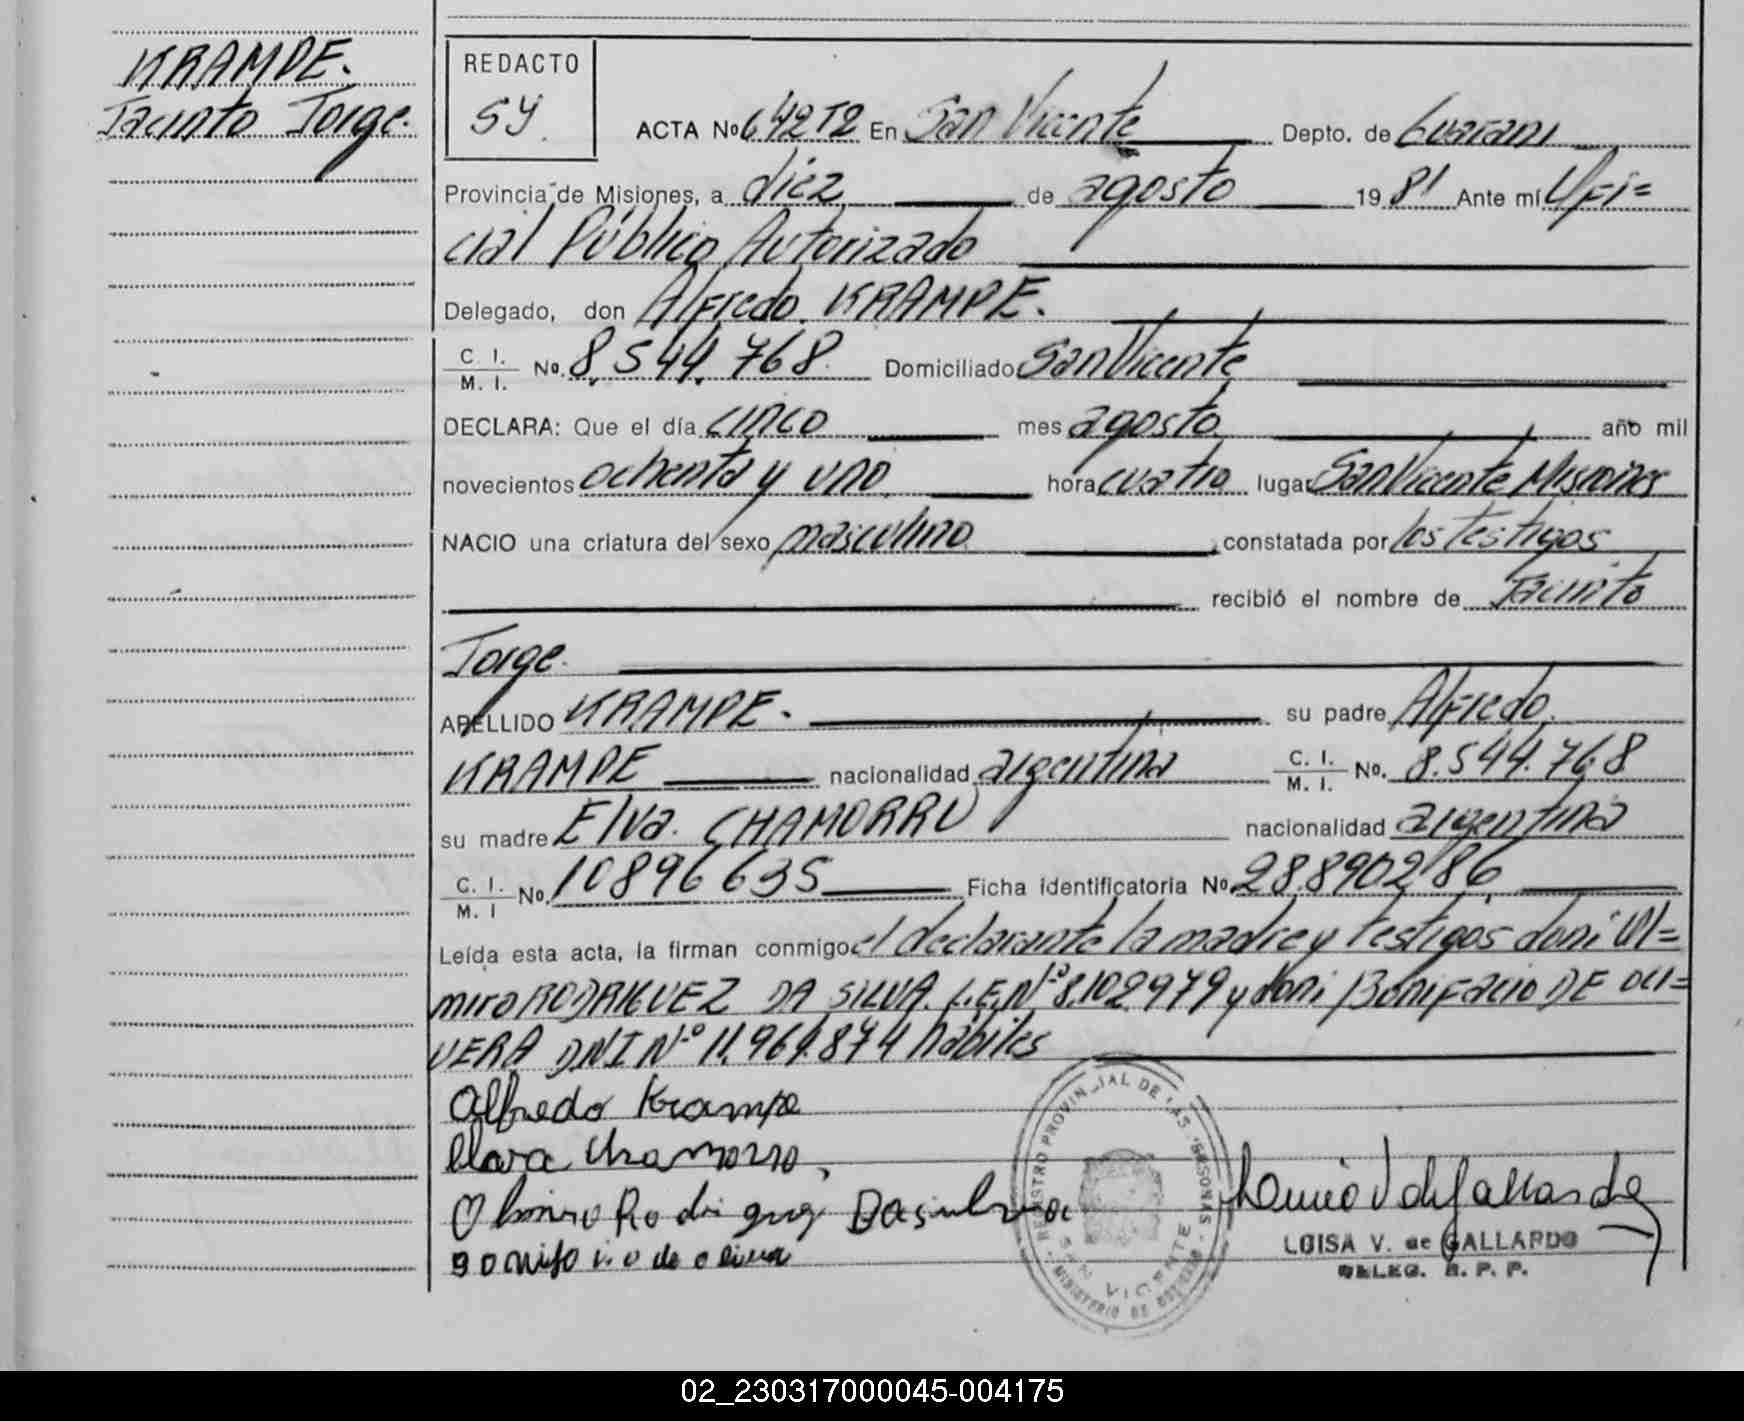 KRAMPE.
Jacinto Jorge.
REDACTO
SY.
ACTA No 642T2 En San Vicente Depto. de Guarani
Provincia de Misiones, a diez de agosto 1981 Ante mí Ofi=
cial Público Autorizado
Delegado, don Alfredo KRAMPE.
C. I. / M. I. No. 8.544.768 Domiciliado San Vicente
DECLARA: Que el día cinco mes agosto año mil
novecientos ochenta y uno hora cuatro lugar San Vicente Misiones
NACIO una criatura del sexo masculino constatada por los testigos
recibió el nombre de Jacinto
Jorge.
APELLIDO KRAMPE. su padre Alfredo
KRAMPE nacionalidad argentina C. I. / M. I. No. 8.544.768
su madre Elva. CHAMORRO nacionalidad argentina
C. I. / M. I No. 10896635 Ficha identificatoria No. 28.890.286
Leída esta acta, la firman conmigo el declarante la madre y testigos don:
miro RODRIGUEZ DA SILVA. L.E.Nº 8.102.979 y don: Bonifacio DE OLI=
VERA DNI Nº 11.969.874 hábiles
Alfredo Krampe
Elava Chamorro,
Olimiro Rodriguez Dasilva
Bonifacio de olivera
REGISTRO PROVINCIAL DE LAS PERSONAS
SAN VICENTE
MINISTERIO DE GOBIERNO
LUISA V. de GALLARDO
DELEG. R. P. P.
02_230317000045-004175